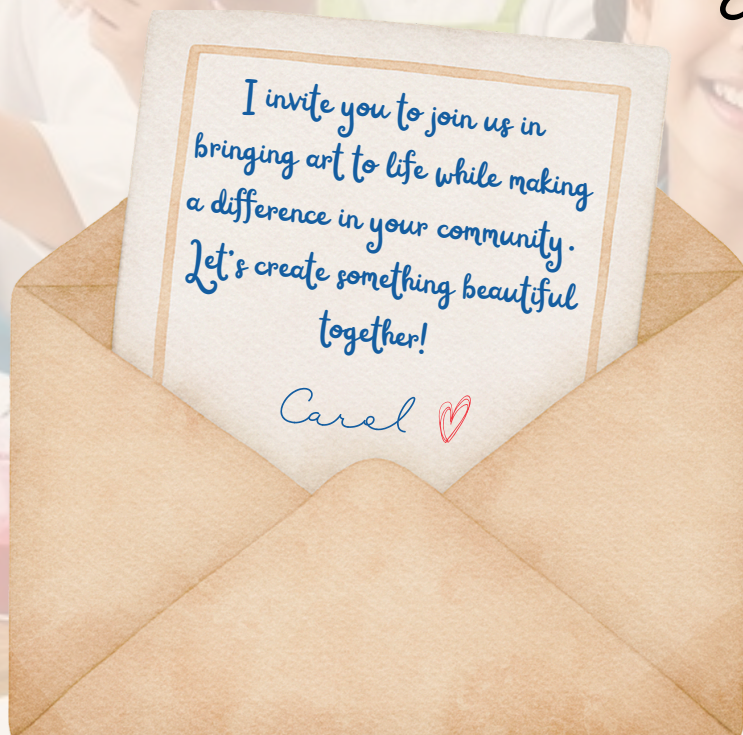 I invite you to join us in
bringing art to life while making
a difference in your community.
Let's create something beautiful
together!
Carol